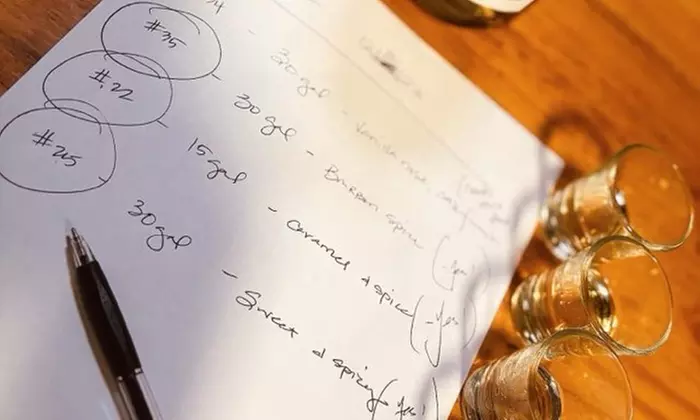 4 - 30 gal - Vanilla nose,
#35 - 30 gal - Bourbon spice (Yes)
#22 - 15 gal - Caramel & spice (Yes)
#25 - 30 gal - Sweet & spicy (Yes!)